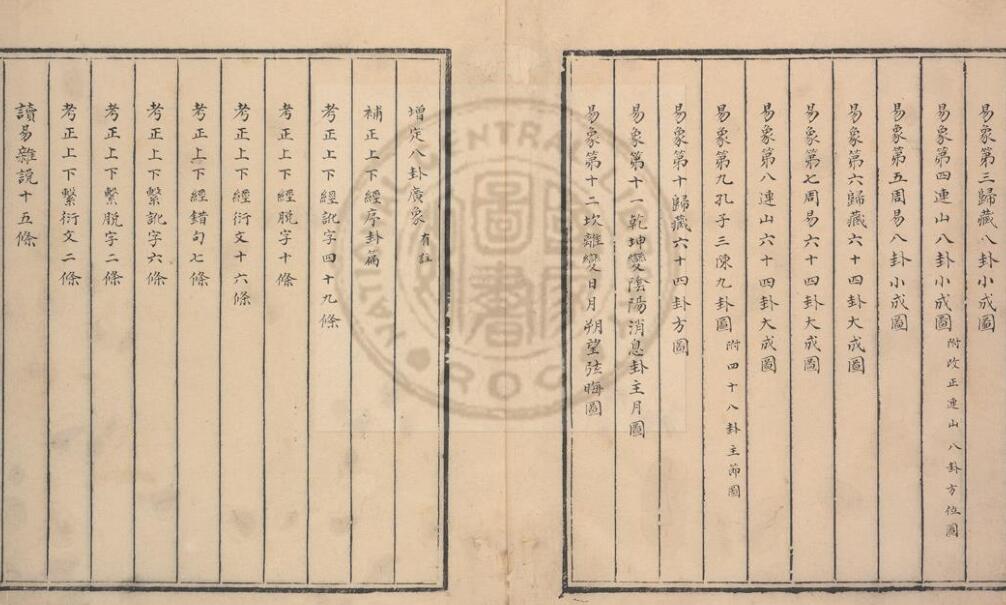 易象第三歸藏八卦小成圖
易象第四連山八卦小成圖 附改正連山八卦方位圖
易象第五周易八卦小成圖
易象第六歸藏六十四卦大成圖
易象第七周易六十四卦大成圖
易象第八連山六十四卦大成圖
易象第九孔子三陳九卦圖 附四十八卦主節圖
易象第十歸藏六十四卦方圖
易象第十一乾坤變陰陽消息卦主月圖
易象第十二坎離變日月朔望弦晦圖
增定八卦廣象 有註
補正上下經序卦篇
考正上下經訛字四十九條
考正上下經脫字十條
考正上下經衍文十六條
考正上下經錯句七條
考正上下繫訛字六條
考正上下繫脫字二條
考正上下繫衍文二條
讀易雜說十五條